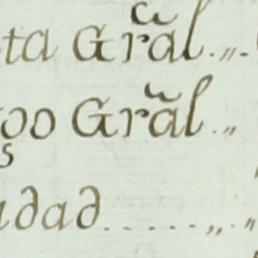 ta Grãl..,,.
oo Grãl.,,
dad......,,.,,